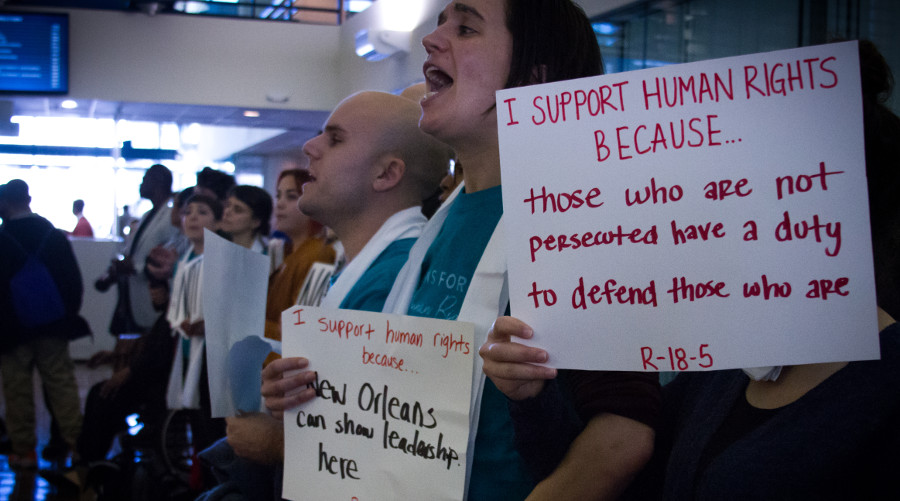 I SUPPORT HUMAN RIGHTS
BECAUSE...
those who are not
persecuted have a duty
to defend those who are
R-18-5
I support human rights
because...
New Orleans
can show leadership
here